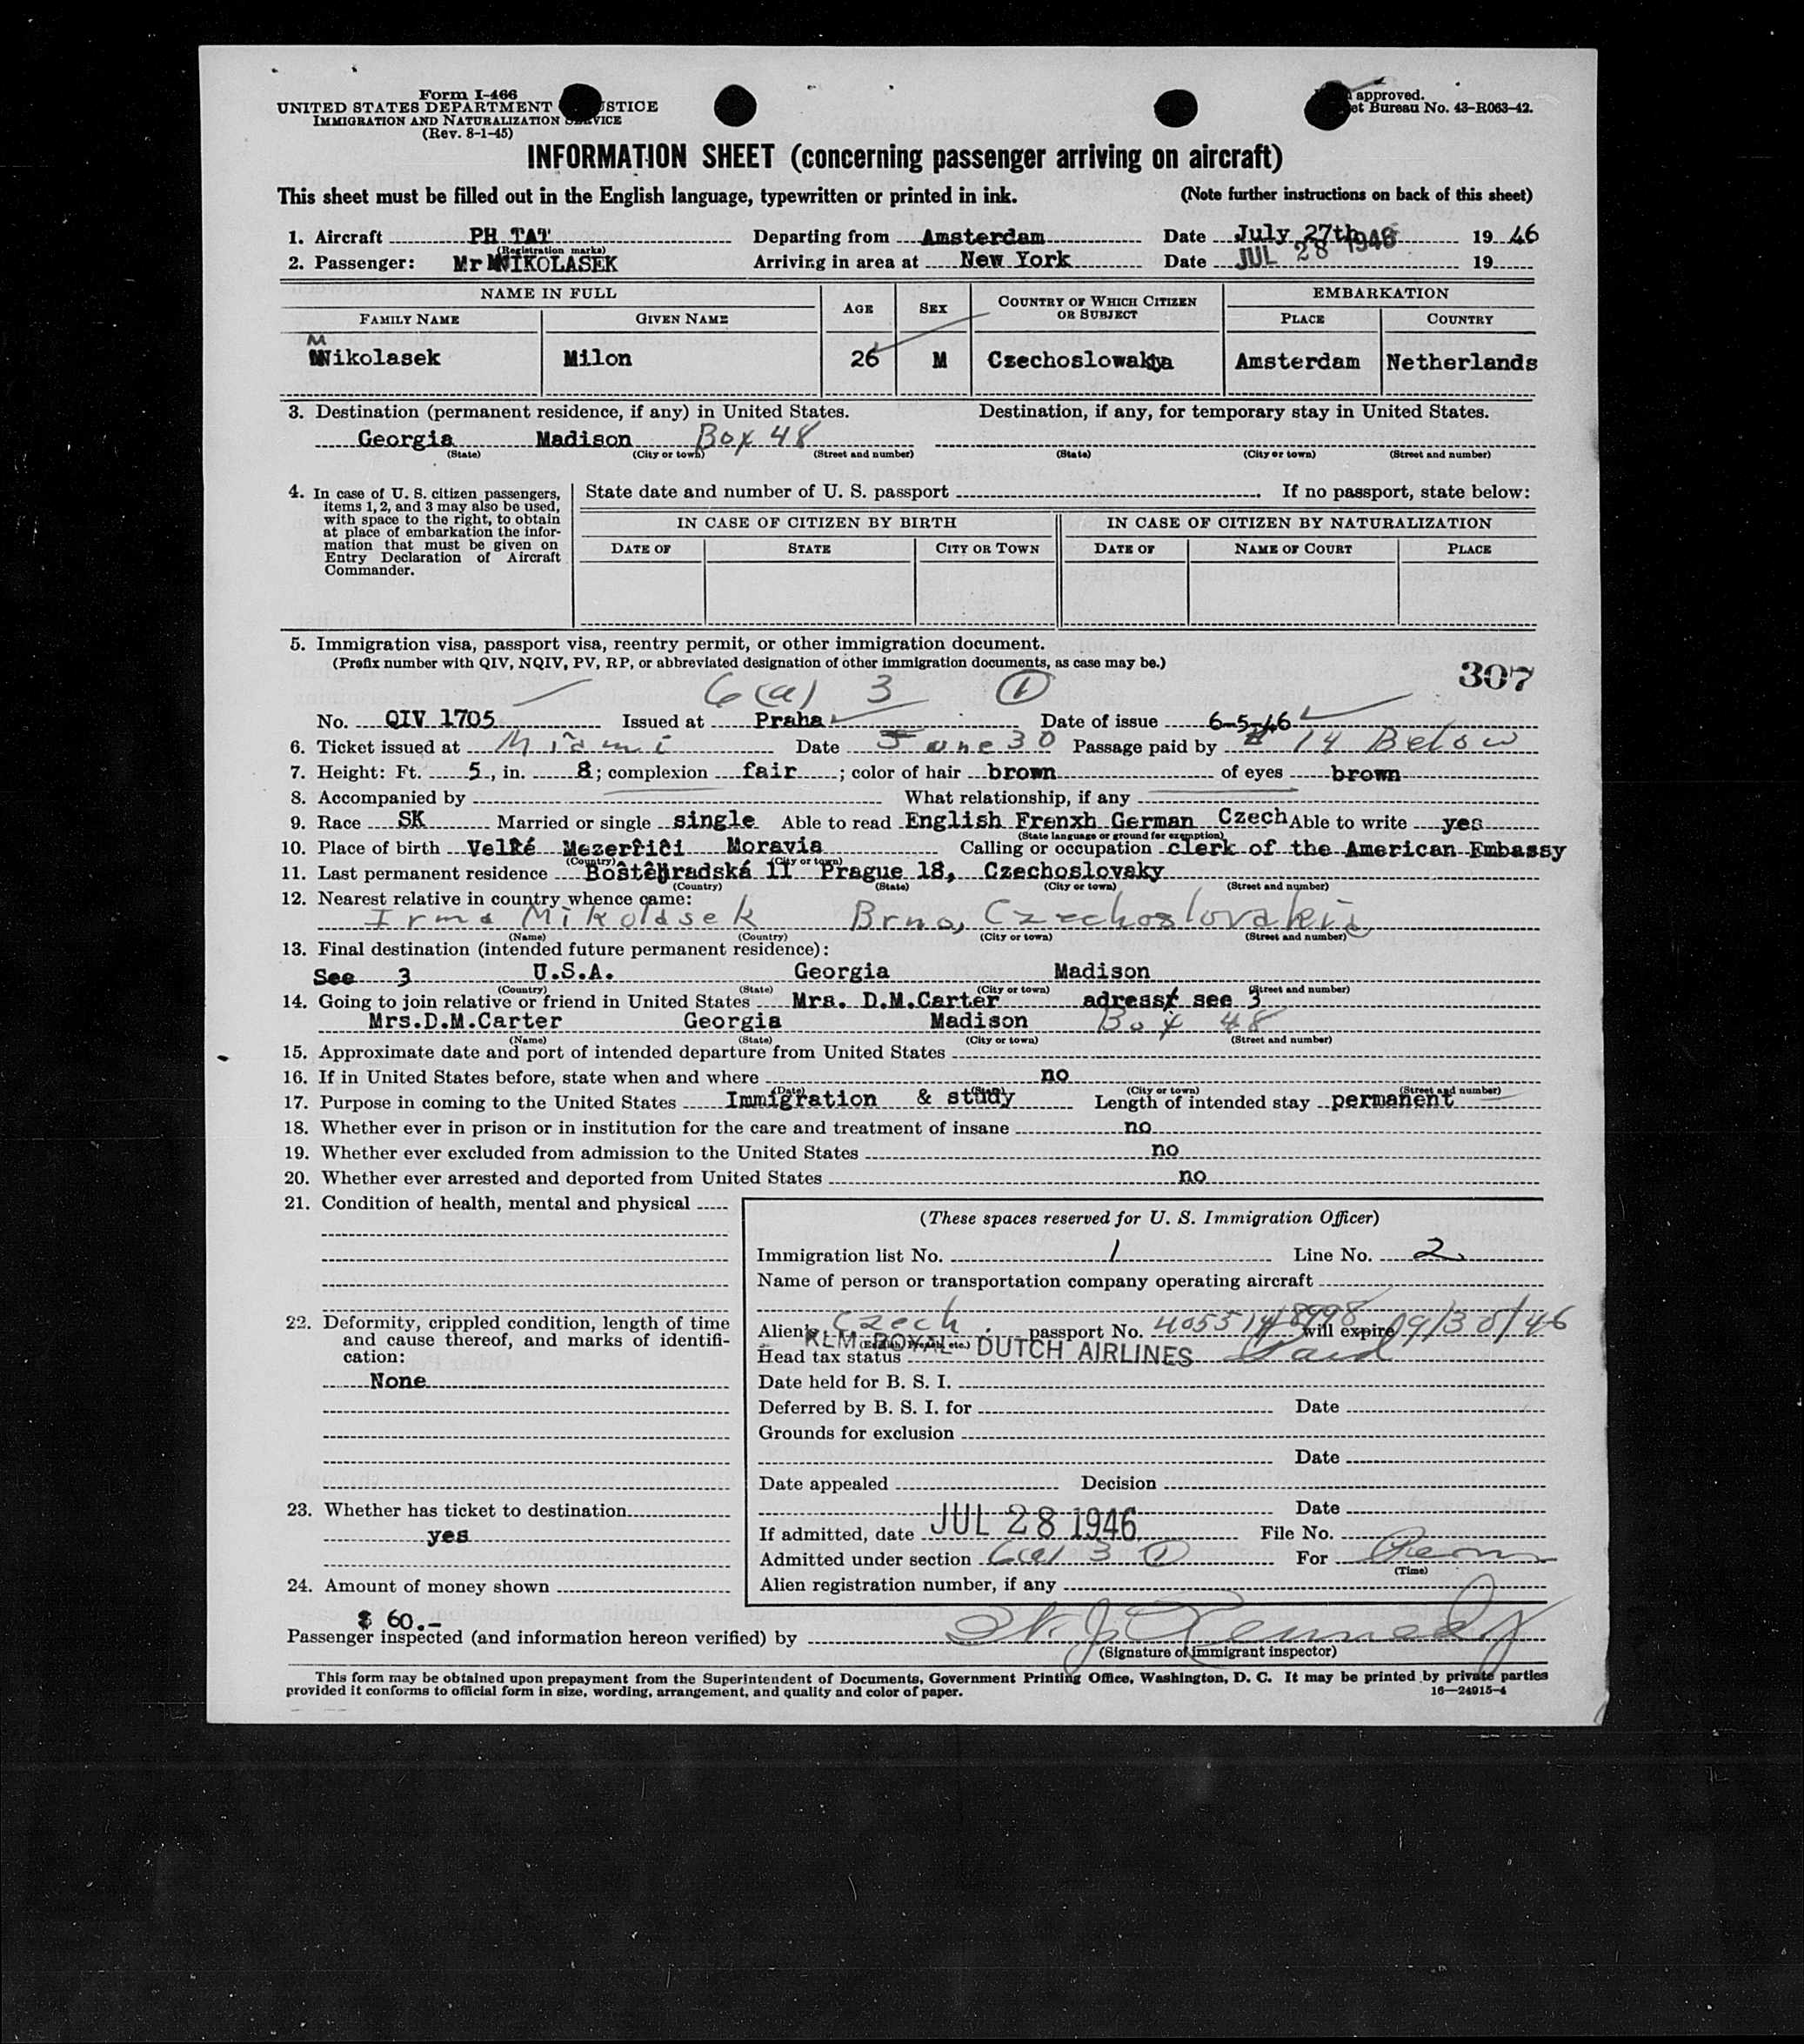 Form I-466
UNITED STATES DEPARTMENT USTICE
IMMIGRATION AND NATURALIZATION SERVICE
(Rev. 8-1-45)
approved.
et Bureau No. 43-R063-42.
INFORMATION SHEET (concerning passenger arriving on aircraft)
This sheet must be filled out in the English language, typewritten or printed in ink. (Note further instructions on back of this sheet)
1. Aircraft PH TAT Departing from Amsterdam Date July 27th 1946
(Registration marks)
2. Passenger: Mr MIKOLASEK Arriving in area at New York Date JUL 28 1946 19
NAME IN FULL AGE SEX COUNTRY OF WHICH CITIZEN OR SUBJECT EMBARKATION
FAMILY NAME GIVEN NAME PLACE COUNTRY
M
Mikolasek Milon 26 M Czechoslowakia Amsterdam Netherlands
3. Destination (permanent residence, if any) in United States. Destination, if any, for temporary stay in United States.
Georgia Madison Box 48
(State) (City or town) (Street and number) (State) (City or town) (Street and number)
4. In case of U. S. citizen passengers, items 1, 2, and 3 may also be used, with space to the right, to obtain at place of embarkation the information that must be given on Entry Declaration of Aircraft Commander.
State date and number of U. S. passport . If no passport, state below:
IN CASE OF CITIZEN BY BIRTH IN CASE OF CITIZEN BY NATURALIZATION
DATE OF STATE CITY OR TOWN DATE OF NAME OF COURT PLACE
5. Immigration visa, passport visa, reentry permit, or other immigration document.
(Prefix number with QIV, NQIV, PV, RP, or abbreviated designation of other immigration documents, as case may be.)
307
6(a) 3 1
No. QIV 1705 Issued at Praha Date of issue 6-5-46
6. Ticket issued at Miami Date June 30 Passage paid by # 14 Below
7. Height: Ft. 5, in. 8; complexion fair; color of hair brown of eyes brown
8. Accompanied by What relationship, if any
9. Race SK Married or single single Able to read English Frenxh German Czech Able to write yes
(State language or ground for exemption)
10. Place of birth Velké Mezeřiči Moravia Calling or occupation clerk of the American Embassy
(Country) (City or town)
11. Last permanent residence Boštěhradská 11 Prague 18, Czechoslovsky
(Country) (State) (City or town) (Street and number)
12. Nearest relative in country whence came:
Irma Mikolasek Brno, Czechoslovakia
(Name) (Country) (City or town) (Street and number)
13. Final destination (intended future permanent residence):
See 3 U.S.A. Georgia Madison
(Country) (State) (City or town) (Street and number)
14. Going to join relative or friend in United States Mrs. D.M.Carter adress see 3
Mrs.D.M.Carter Georgia Madison Box 48
(Name) (State) (City or town) (Street and number)
15. Approximate date and port of intended departure from United States
16. If in United States before, state when and where no
(Date) (State) (City or town) (Street and number)
17. Purpose in coming to the United States Immigration & study Length of intended stay permanent
18. Whether ever in prison or in institution for the care and treatment of insane no
19. Whether ever excluded from admission to the United States no
20. Whether ever arrested and deported from United States no
21. Condition of health, mental and physical
22. Deformity, crippled condition, length of time and cause thereof, and marks of identification:
None
23. Whether has ticket to destination
yes
24. Amount of money shown
$ 60.-
(These spaces reserved for U. S. Immigration Officer)
Immigration list No. 1 Line No. 2
Name of person or transportation company operating aircraft
KLM ROYAL DUTCH AIRLINES
Alien's Czech passport No. 405514/8998 will expire 9/30/46
(English, French, etc.)
Head tax status Paid
Date held for B. S. I.
Deferred by B. S. I. for Date
Grounds for exclusion
Date
Date appealed Decision
Date
If admitted, date JUL 28 1946 File No.
Admitted under section 6(a) 3 1 For Perm
(Time)
Alien registration number, if any
Passenger inspected (and information hereon verified) by Kennedy
(Signature of immigrant inspector)
This form may be obtained upon prepayment from the Superintendent of Documents, Government Printing Office, Washington, D. C. It may be printed by private parties
provided it conforms to official form in size, wording, arrangement, and quality and color of paper. 16—24915-4